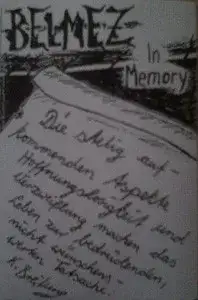 BELMEZ
In
Memory
Die stetig auf-
kommenden Aspekte
Hoffnungslosigkeit und
Verzweiflung machen das
Leben zur bedeutenden,
nicht wünschens-
werten Tatsache.